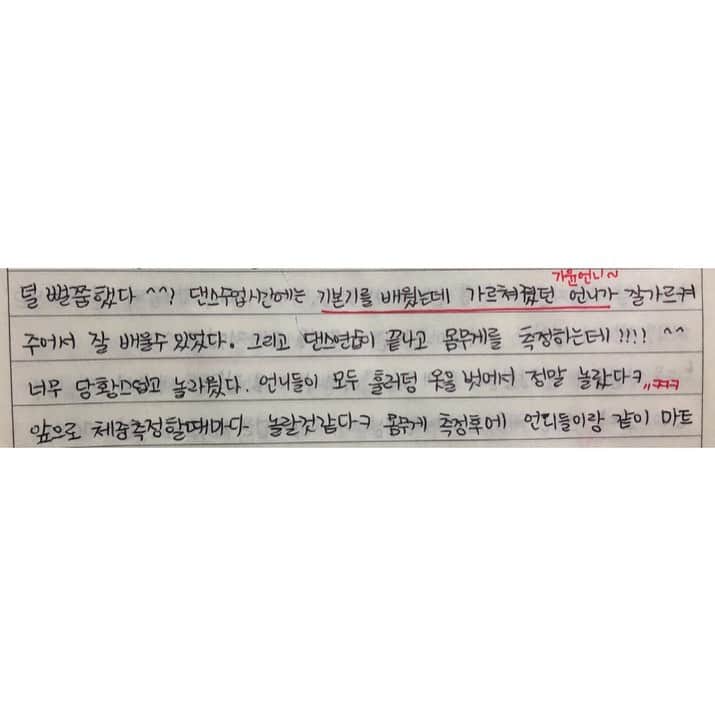 가윤언니~
덜 뻘쭘했다 ^^? 댄스수업시간에는 기본기를 배웠는데 가르쳐줬던 언니가 잘가르켜
주어서 잘 배울수 있었다. 그리고 댄스연습이 끝나고 몸무게를 측정하는데!!!! ^^
너무 당황스럽고 놀라웠다. 언니들이 모두 훌러덩 옷을 벗어서 정말 놀랐다ㅋ ,,ㅋㅋㅋ
앞으로 체중측정할때마다 놀랄것같다ㅋ 몸무게 측정후에 언니들이랑 같이 마트